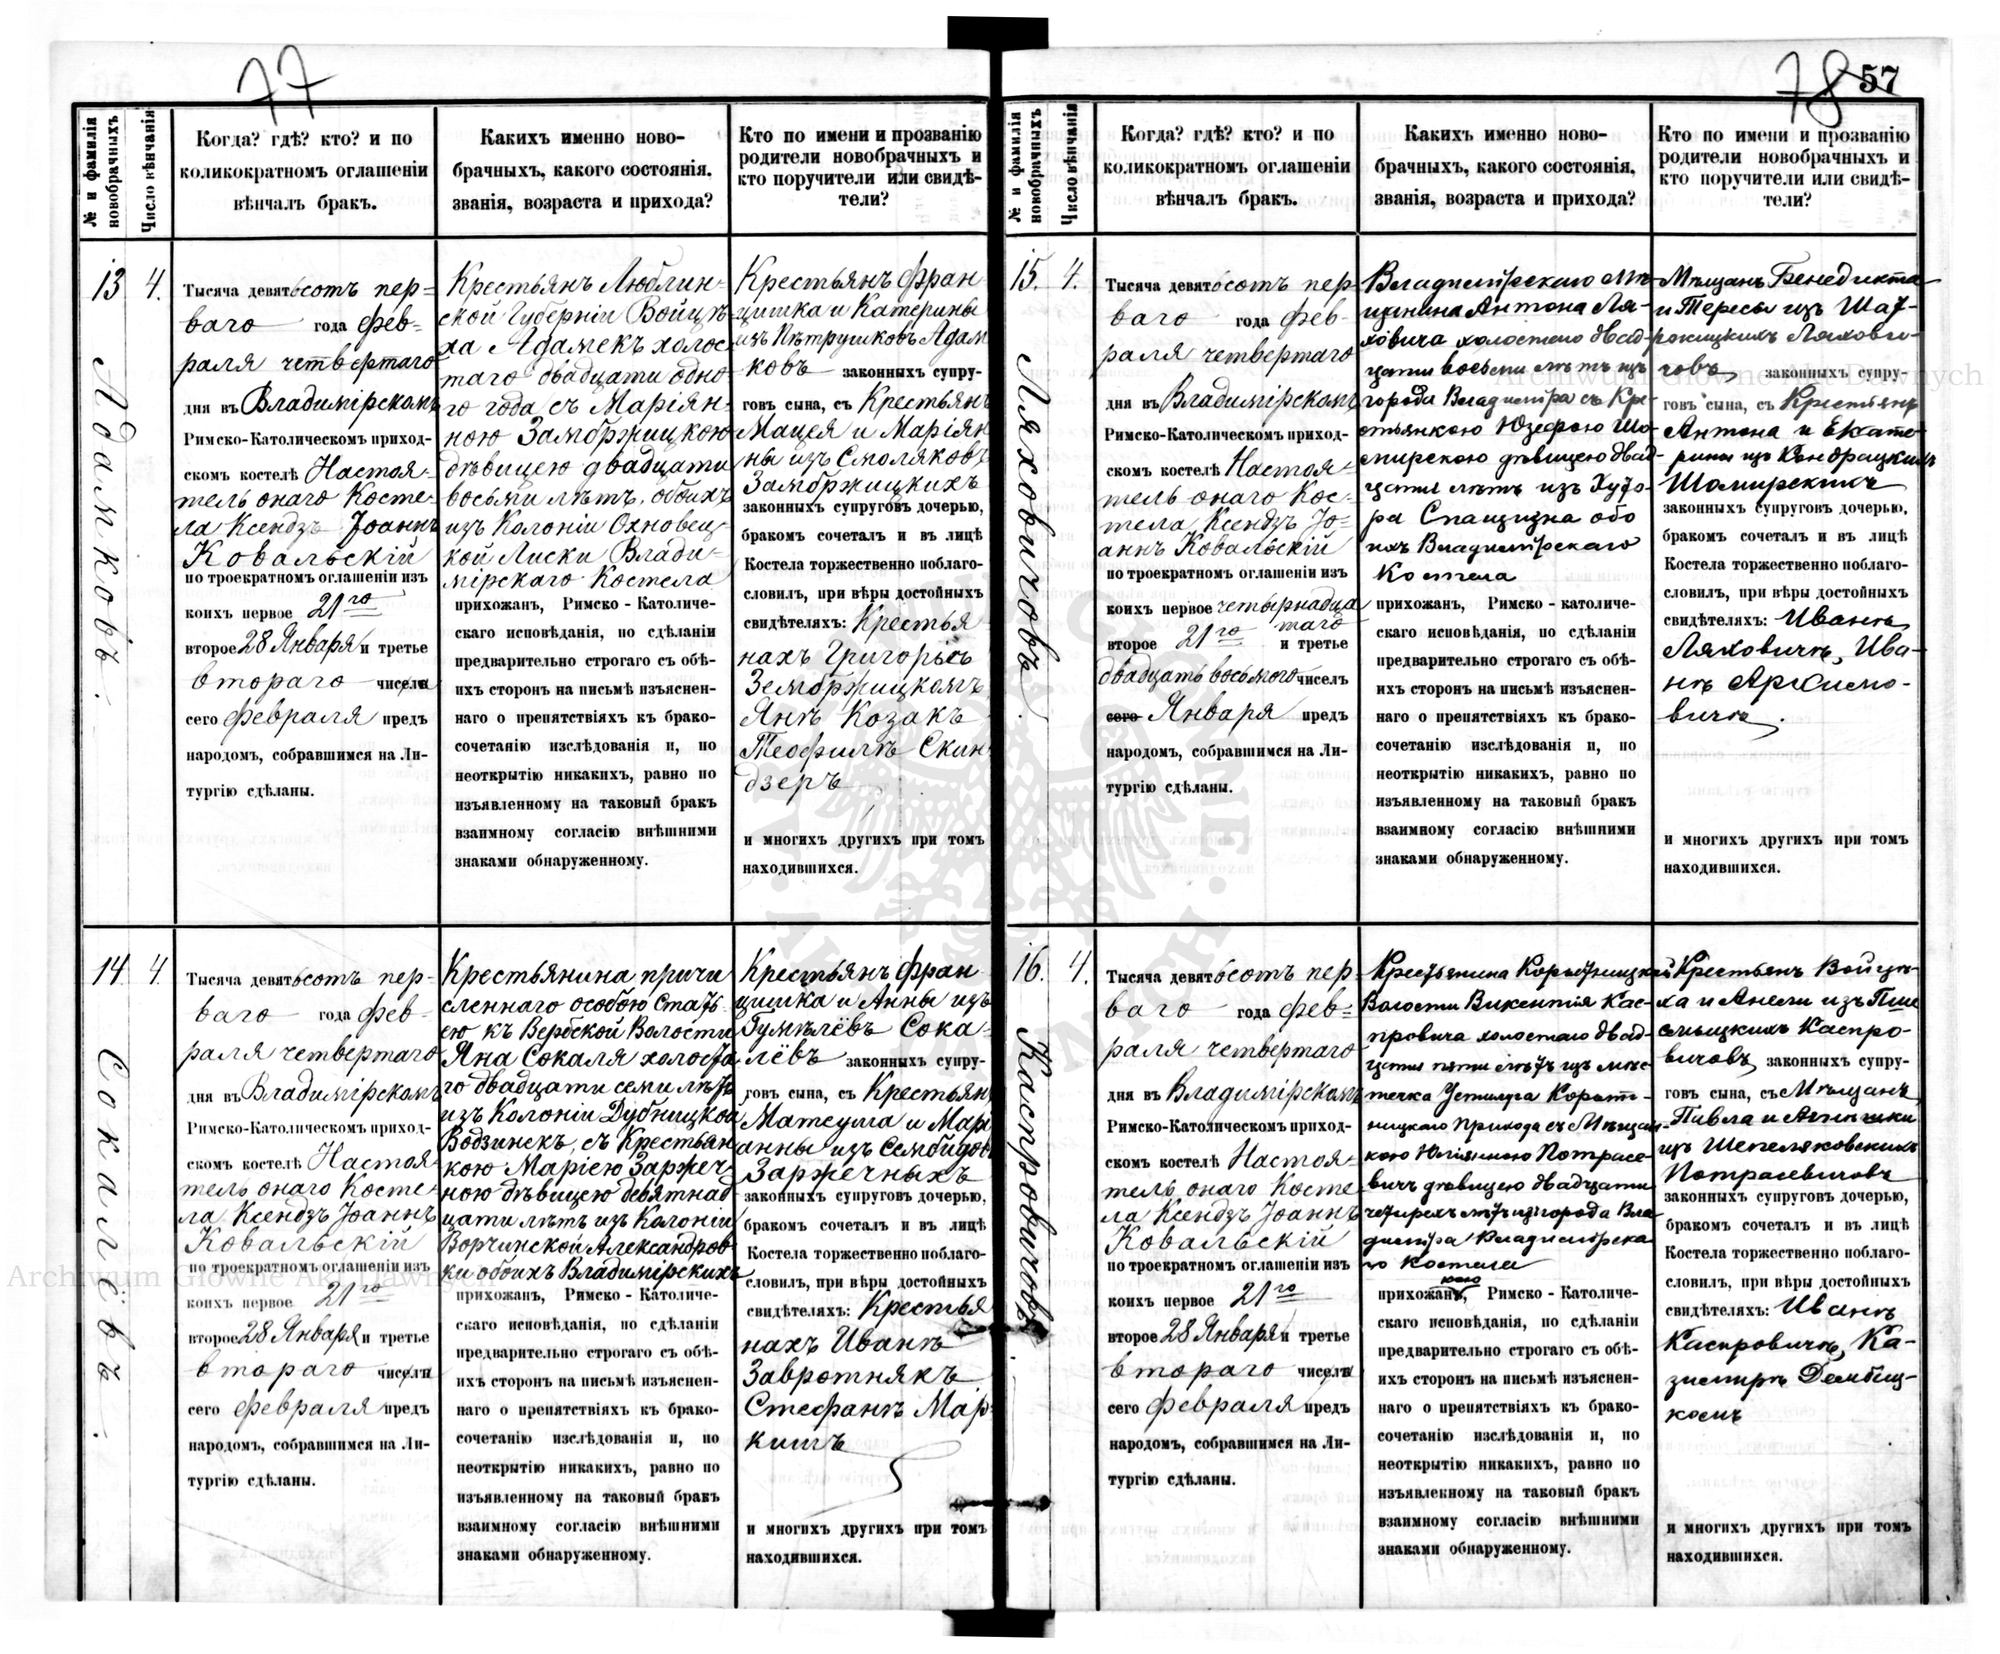 77
№ и фамилія новобрачныхъ
Число вѣнчанія
Когда? гдѣ? кто? и по
коликократномъ оглашеніи
вѣнчалъ бракъ.
Какихъ именно ново-
брачныхъ, какого состоянія,
званія, возраста и прихода?
Кто по имени и прозванію
родители новобрачныхъ и
кто поручители или свидѣ-
тели?
13
Адамковъ.
4.
Тысяча девятьсотъ пер-
ваго года фев-
раля четвертаго
дня въ Владимірскомъ
Римско-Католическомъ приход-
скомъ костелѣ Настоя-
тель онаго Косте-
ла Ксендзъ Іоаннъ
Ковальскій
по троекратномъ оглашеніи изъ
коихъ первое 21го
второе 28 Января и третье
втораго числа
сего февраля предъ
народомъ, собравшимся на Ли-
тургію сдѣланы.
Крестьянъ Люблин-
ской Губерніи Войцѣ-
ха Адамекъ холос-
таго двадцати одно-
го года съ Маріян-
ною Замбржицкою
дѣвицею двадцати
восьми лѣтъ, обоихъ
изъ Колоніи Охновец-
кой Лиски Влади-
мірскаго Костела
прихожанъ, Римско - Католиче-
скаго исповѣданія, по сдѣланіи
предварительно строгаго съ обѣ-
ихъ сторонъ на письмѣ изъяснен-
наго о препятствіяхъ къ брако-
сочетанію изслѣдованія и, по
неоткрытію никакихъ, равно по
изъявленному на таковый бракъ
взаимному согласію внѣшними
знаками обнаруженному.
Крестьянъ Фран-
цишка и Катерины
изъ Пѣтрушковъ Адам
ковъ законныхъ супру-
говъ сына, съ Крестьянъ
Мацея и Маріян
ны изъ Смоляковъ
Замбржицкихъ
законныхъ супруговъ дочерью,
бракомъ сочеталъ и въ лицѣ
Костела торжественно поблаго-
словилъ, при вѣры достойныхъ
свидѣтеляхъ: Крестья
нахъ Григоріѣ
Зембржицкомъ
Янѣ Козакъ
Теофилѣ Скин-
дзеръ
и многихъ другихъ при томъ
находившихся.
14
Сокалёвъ.
4.
Тысяча девятьсотъ пер-
ваго года фев-
раля четвертаго
дня въ Владимірскомъ
Римско-Католическомъ приход-
скомъ костелѣ Настоя-
тель онаго Косте-
ла Ксендзъ Іоаннъ
Ковальскій
по троекратномъ оглашеніи изъ
коихъ первое 21го
второе 28 Января и третье
втораго числа
сего февраля предъ
народомъ, собравшимся на Ли-
тургію сдѣланы.
Крестьянина причи
сленнаго особою стать
ею къ Вербской Волости
Яна Сокаля холоста
го двадцати семи лѣтъ
изъ Колоніи Дубницкой
Водзинекъ, съ Крестьян
кою Маріею Заржеч-
ною дѣвицею девятнад
цати лѣтъ изъ Колоніи
Ворчинской Александров
ки обоихъ Владимірскихъ
прихожанъ, Римско - Католиче-
скаго исповѣданія, по сдѣланіи
предварительно строгаго съ обѣ-
ихъ сторонъ на письмѣ изъяснен-
наго о препятствіяхъ къ брако-
сочетанію изслѣдованія и, по
неоткрытію никакихъ, равно по
изъявленному на таковый бракъ
взаимному согласію внѣшними
знаками обнаруженному.
Крестьянъ Фран-
цишка и Анны изъ
Гумѣлёвъ Сока-
лёвъ законныхъ супру-
говъ сына, съ Крестьян
Матеуша и Марі
анны изъ Сембидовъ
Заржечныхъ
законныхъ супруговъ дочерью,
бракомъ сочеталъ и въ лицѣ
Костела торжественно поблаго-
словилъ, при вѣры достойныхъ
свидѣтеляхъ: Крестья
нахъ Иванѣ
Завротнякъ
Стефанѣ Мар-
кишъ
и многихъ другихъ при томъ
находившихся.
78 57
№ и фамилія новобрачныхъ
Число вѣнчанія
Когда? гдѣ? кто? и по
коликократномъ оглашеніи
вѣнчалъ бракъ.
Какихъ именно ново-
брачныхъ, какого состоянія,
званія, возраста и прихода?
Кто по имени и прозванію
родители новобрачныхъ и
кто поручители или свидѣ-
тели?
15.
Ляховичовъ.
4.
Тысяча девятьсотъ пер-
ваго года фев-
раля четвертаго
дня въ Владимірскомъ
Римско-Католическомъ приход-
скомъ костелѣ Настоя-
тель онаго Кос-
тела Ксендзъ Іо-
аннъ Ковальскій
по троекратномъ оглашеніи изъ
коихъ первое четырнадца
таго
второе 21го и третье
двадцать восьмого чиселъ
сего Января предъ
народомъ, собравшимся на Ли-
тургію сдѣланы.
Владимірскаго Мѣ-
щанина Антона Ля-
ховича холостаго двад-
цати восьми лѣтъ изъ
города Владиміра съ Кре-
стьянкою Юзефою Шо-
мирскою дѣвицею двад-
цати лѣтъ изъ Хуто-
ра Спащизна обо
ихъ Владимірскаго
Костела
прихожанъ, Римско - католиче-
скаго исповѣданія, по сдѣланіи
предварительно строгаго съ обѣ-
ихъ сторонъ на письмѣ изъяснен-
наго о препятствіяхъ къ брако-
сочетанію изслѣдованія и, по
неоткрытію никакихъ, равно по
изъявленному на таковый бракъ
взаимному согласію внѣшними
знаками обнаруженному.
Мѣщанъ Бенедикта
и Тересы изъ Шат-
роницкихъ Ляхови-
човъ, законныхъ супру-
говъ сына, съ Крестьянъ
Антона и Екате-
рины изъ Кондрацкихъ
Шомирскихъ
законныхъ супруговъ дочерью,
бракомъ сочеталъ и въ лицѣ
Костела торжественно поблаго-
словилъ, при вѣры достойныхъ
свидѣтеляхъ: Иванѣ
Ляховичѣ, Ива-
нѣ Архимо-
вичѣ.
и многихъ другихъ при томъ
находившихся.
16.
Каспровичовъ.
4.
Тысяча девятьсотъ пер-
ваго года фев-
раля четвертаго
дня въ Владимірскомъ
Римско-Католическомъ приход-
скомъ костелѣ Настоя-
тель онаго Косте-
ла Ксендзъ Іоаннъ
Ковальскій
по троекратномъ оглашеніи изъ
коихъ первое 21го
второе 28 Января и третье
втораго числа
сего февраля предъ
народомъ, собравшимся на Ли-
тургію сдѣланы.
Крестьянина Корытницкой
Волости Викентія Кас-
провича холостаго двад-
цати пяти лѣтъ изъ мѣс-
течка Устилуга Корыт-
ницкаго прихода съ Мѣщан-
кою Юліянною Потрасе-
вичъ дѣвицею двадцати
четырехъ лѣтъ изъ города Вла
диміра Владимірска
го Костела
кою
прихожанъ, Римско - Католиче-
скаго исповѣданія, по сдѣланіи
предварительно строгаго съ обѣ-
ихъ сторонъ на письмѣ изъяснен-
наго о препятствіяхъ къ брако-
сочетанію изслѣдованія и, по
неоткрытію никакихъ, равно по
изъявленному на таковый бракъ
взаимному согласію внѣшними
знаками обнаруженному.
Крестьянъ Войцѣ-
ха и Анели изъ Пше
смыцкихъ Каспро-
вичовъ, законныхъ супру-
говъ сына, съ Мѣщанъ
Павла и Агнѣшки
изъ Шепеляковскихъ
Потрасевичовъ
законныхъ супруговъ дочерью,
бракомъ сочеталъ и въ лицѣ
Костела торжественно поблаго-
словилъ, при вѣры достойныхъ
свидѣтеляхъ: Иванѣ
Каспровичѣ, Ка-
зимирѣ Дембиц-
комъ
и многихъ другихъ при томъ
находившихся.
Archiwum Główne Akt Dawnych
Archiwum Główne Akt Dawnych